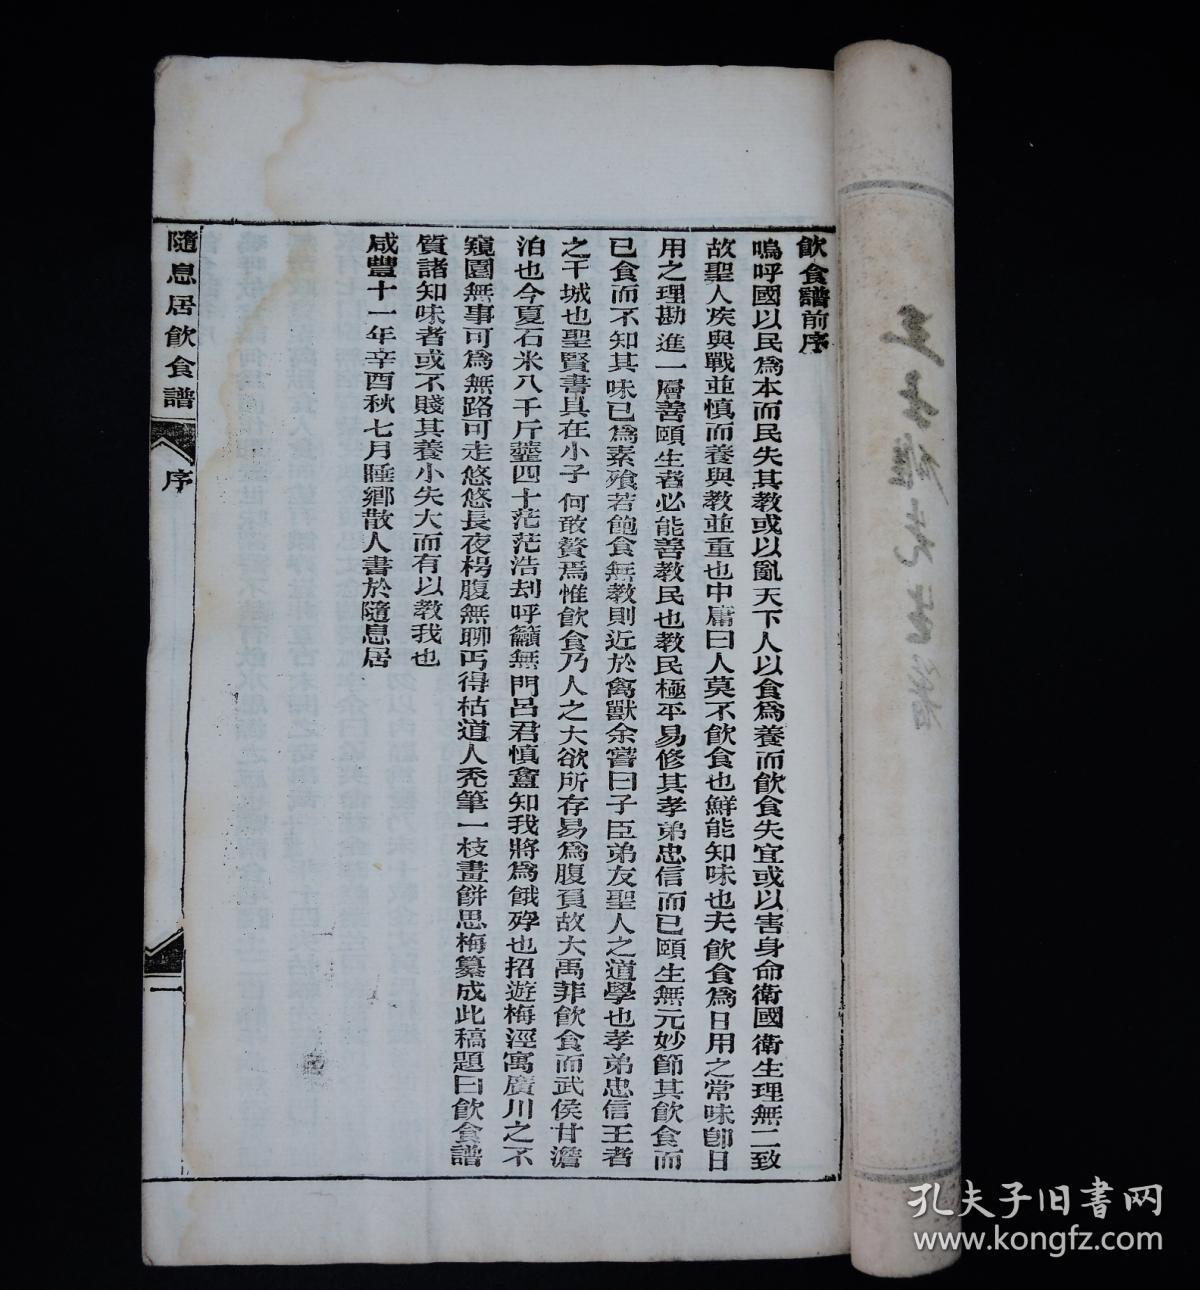 飲食譜前序
嗚呼國以民爲本而民失其教或以亂天下人以食爲養而飲食失宜或以害身命衛國衛生理無二致
故聖人疾與戰並慎而養與教並重也中庸曰人莫不飲食也鮮能知味也夫飲食爲日用之常味卽日
用之理勘進一層善頤生者必能善教民也教民極平易修其孝弟忠信而已頤生無元妙節其飲食而
已食而不知其味已爲素飱若飽食無教則近於禽獸余嘗曰子臣弟友聖人之道學也孝弟忠信王者
之干城也聖賢書具在小子何敢贅焉惟飲食乃人之大欲所存易爲腹負故大禹菲飲食而武侯甘澹
泊也今夏石米八千斤虀四十茫茫浩刦呼籲無門呂君慎盦知我將爲餓殍也招遊梅涇寓廣川之不
窺園無事可爲無路可走悠悠長夜枵腹無聊丐得枯道人禿筆一枝畫餅思梅纂成此稿題曰飲食譜
質諸知味者或不賤其養小失大而有以教我也
咸豐十一年辛酉秋七月睡鄉散人書於隨息居
隨息居飲食譜
序
一
孔夫子旧书网
www.kongfz.com